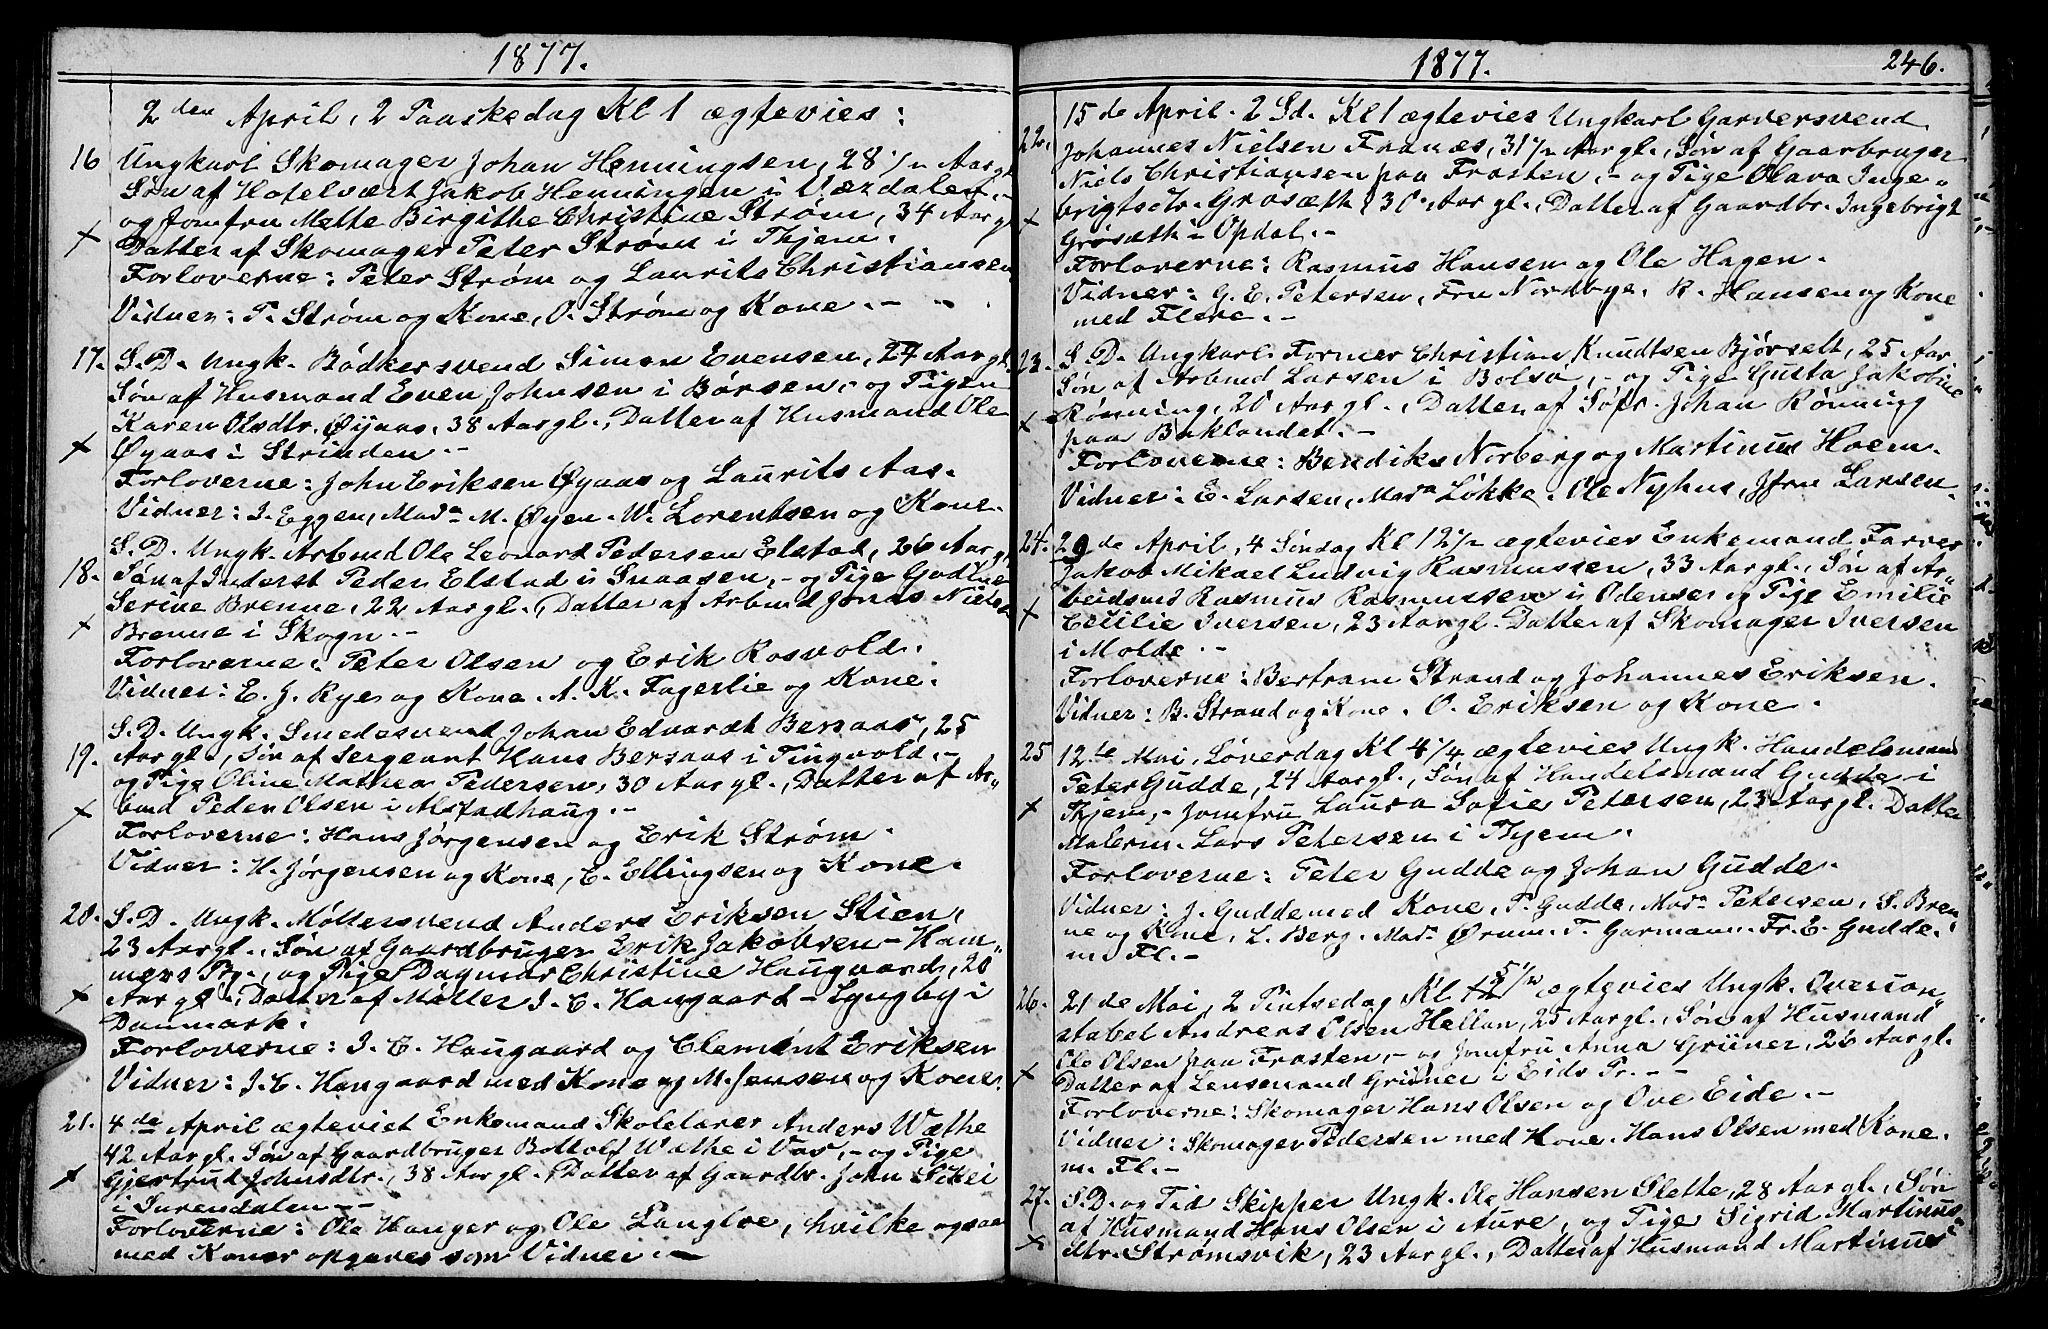 1877.
2den April, 2 Paaskedag Kl 1 ægtevies:
16 Ungkarl Skomager Johan Henningsen, 28 1/2 Aar gl.
Søn af Hotelvært Jakob Henningen i Værdalen. -
og Jomfru Mette Birgithe Christine Strøm, 34 Aar gl
x Datter af Skomager Peter Strøm i Thjem.
Forloverne: Peter Strøm og Laurits Christiansen
Vidner: P. Strøm og Kone, O. Strøm og Kone. -
17. S. D. Ungk. Bødkersvend Simon Evensen, 27 Aar gl.
Søn af Husmand Even Johnsen i Børsen, og Pigen
Karen Olsdtr. Øyaas, 38 Aar gl., Datter af Husmand Ole
x Øyaas i Strinden. -
Forloverne: John Eriksen Øyaas og Laurits Aas.
Vidner: I. Eggen, Mada M. Øyen. W. Lorentsen og Kone.
S. D. Ungk. Arbmd Ole Leonard Pedersen Elstad, 26 Aar gl.,
18. Søn af Inderst Peder Elstad i Snaasen, - og Pige Gudline
Serine Brenne, 22 Aar gl., Datter af Arbmd Jonas Niels.
x Brenne i Skogn. -
Forloverne: Peter Olsen og Erik Rosvold.
Vidner: E. J. Rye og Kone. A. K. Fagerlie og Kone.
S. D. Ungk. Smedesvend Johan Edvardt Bersaas, 25
19. Aar gl., Søn af Sergeant Hans Bersaas i Tingvold. -
og Pige Oline Mathea Pedersen, 30 Aar gl., Datter af Ar-
x bmd Peder Olsen i Alstadhaug. -
Forloverne: Hans Jørgensen og Erik Strøm.
Vidner: H. Jørgensen og Kone, E. Ellingsen og Kone.
20. S. D. Ungk. Møllersvend Anders Eriksen Stien,
23 Aar gl., Søn af Gaardbruger Erik Jakobsen - Ham-
mers Pg., og Pige Dagmar Christine Haugaard, 20
x Aar gl., Datter af Møller I. C. Haugaard - Lyngby i
Danmark.
Forloverne: I. C. Haugaard og Clement Eriksen
Vidner: I. C. Haugaard med Kone og M. Jensen og Kone.
21. 4de April ægteviet Enkemand Skolelærer Anders Wæthe
42 Aar gl. Søn af Gaardbruger Bottolf Wæthe i Vos, - og Pige
x Gjertrud Johnsdtr., 38 Aar gl., Datter af Gaardbr. John
i Surendalen. -
Forloverne: Ole Hanger og Ole Langloe, hvilke ogsaa
med Koner opgaves som Vidnei. -
1877. 246.
15de April. 2 Sd. Kl 1 ægtevies Ungkarl Garversvend
22. Johannes Nielsen Franæs, 31 1/2 Aar gl., Søn af Gaarbruger
Niels Christiansen paa Frosten, - og Pige Olava Inge-
x brigtsdtr. Grøsæth, 30 Aar gl., Datter af Gaardbr. Ingebrigt
Grøsæth i Opdal. -
Forloverne: Rasmus Hansen og Ole Hagen.
Vidner: G. E. Petersen, Fru Nordbye. R. Hansen og Kone
med Flere. -
23. S. D. Ungkarl Former Christian Knudtsen Bjørselt, 25 Aar
Søn af Arbmd Larsen i Bolsø, - og Pige Gusta Jakobine
x Rønning, 20 Aar gl., Datter af Søfr. Johan Rønning
paa Baklandet. -
Forloverne: Bendiks Norberg og Martinus Hoem.
Vidner: E. Larsen, Mada Løkke. Ole Nyhus, Jfru Larsen.
24. 29de April, 4 Søndag Kl 12 1/2 ægtevies Enkemand Farver
Jakob Mikael Ludvig Rasmussen, 33 Aar gl., Søn af Ar-
beidsmd Rasmus Rasmussen i Odense og Pige Emilie
x Cecilie Iversen, 23 Aar gl. Datter af Skomager Iversen
i Molde. -
Forloverne: Bertram Strand og Johannes Eriksen.
Vidner: B. Strand og Kone. O. Eriksen og Kone.
25 12te Mai, Løverdag Kl 4 1/4 ægtevies Ungk. Handelsmand
Peter Gudde, 24 Aar gl., Søn af Handelsmand Gudde i
x Thjem, - Jomfru Laura Sofie Petersen, 23 Aar gl. Datter
Malerm. Lars Petersen i Thjem.
Forloverne: Peter Gudde og Johan Gudde.
Vidner: J. Gudde med Kone, P. Gudde, Mada Petersen, S. Bren
ne og Kone, L. Berg. Mada Ørum. T. Garmann. Fr. E. Gudde.
m. Fl. -
26. 21de Mai, 2 Pintsedag Kl 5 1/2 ægtevies Ungk. Overcon-
stabel Andreas Olsen Hellan, 25 Aar gl., Søn af Husmand
Ole Olsen paa Frosten, - og Jomfru Anna Grüner, 26 Aar gl.
x Datter af Lensmand Grüner i Eids Pr. - -
Forloverne: Skomager Hans Olsen og Ove Eide. -
Vidner: Skomager Pedersen med Kone. Hans Olsen med Kone.
m. Fl. -
27. S. D. og Tid Skipper Ungk. Ole Hansen Slette, 28 Aar gl., Søn
af Husmand Hans Olsen i Aure, og Pige Sigrid Martinus-
x dtr. Strømsvik, 23 Aar gl., Datter af Husmand Martinus